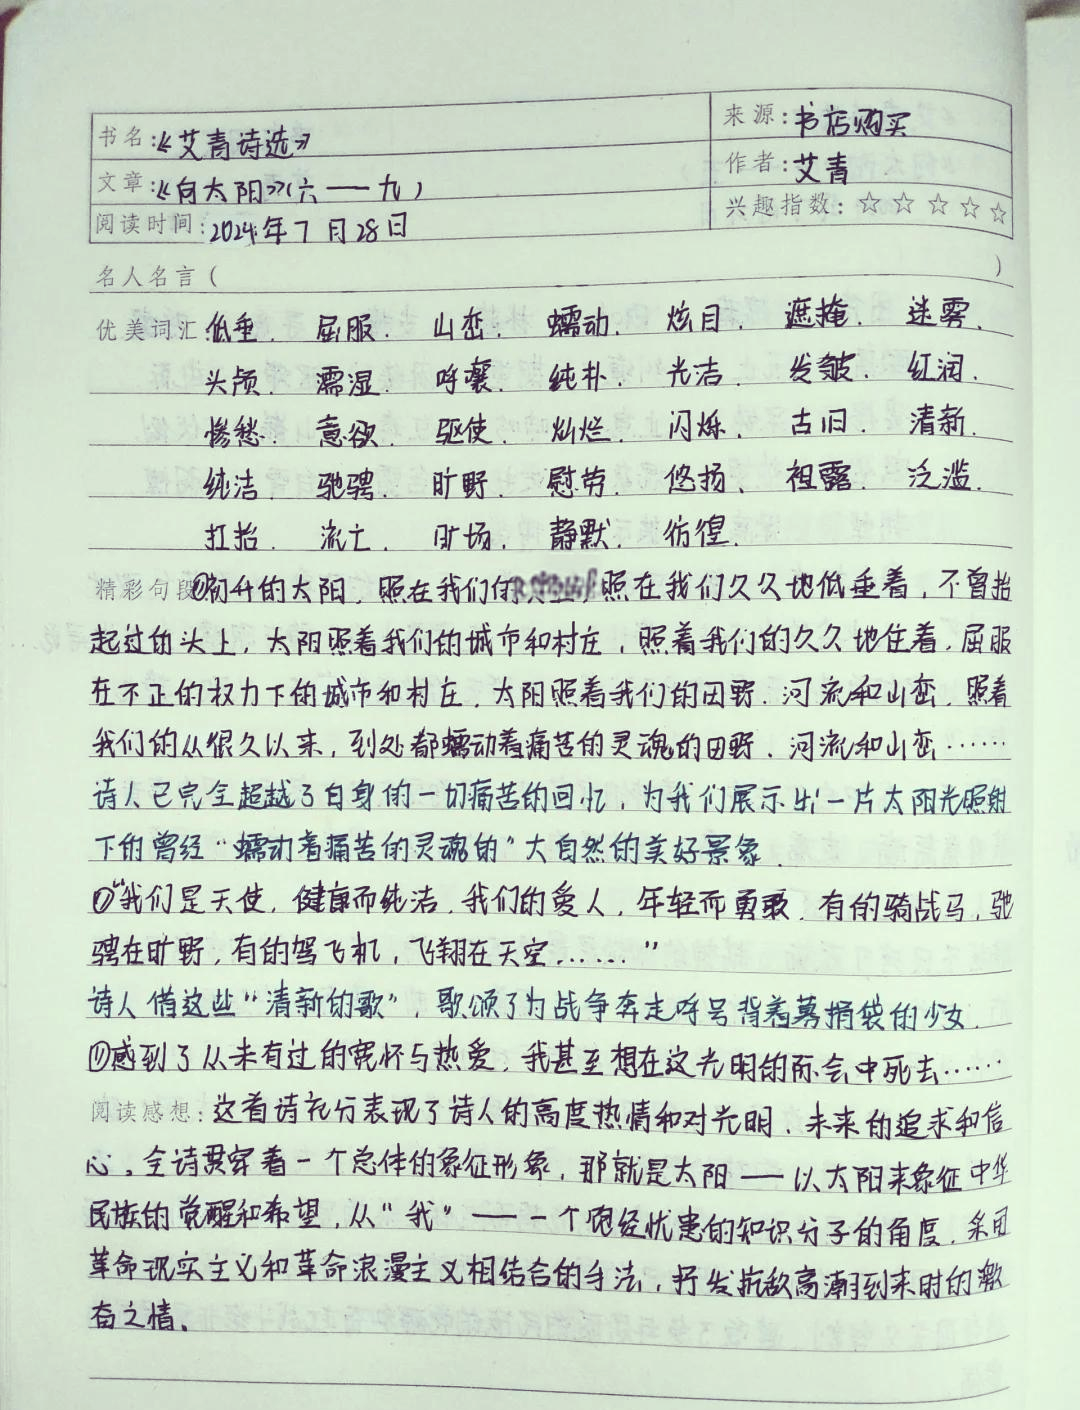 书名:《艾青诗选》 来源:书店购买
文章:《向太阳》(六一一九) 作者:艾青
阅读时间:2024年7月28日 兴趣指数:☆☆☆☆☆
名人名言( )
优美词汇:低垂、屈服、山峦、蠕动、炫目、遮掩、迷雾、
头颅、濡湿、呼嚷、纯朴、光洁、发皱、红润、
惨愁、意欲、驱使、灿烂、闪烁、古旧、清新、
纯洁、驰骋、旷野、慰劳、悠扬、袒露、泛滥、
扛抬、流亡、旷场、静默、彷徨、
精彩句段①初升的太阳,照在我们的 照在我们久久地低垂着,不曾抬
起过的头上,太阳照着我们的城市和村庄,照着我们的久久地住着,屈服
在不正的权力下的城市和村庄、太阳照着我们的田野、河流和山峦、照着
我们的从很久以来,到处都蠕动着痛苦的灵魂的田野、河流和山峦……
诗人已完全超越了自身的一切痛苦的回忆,为我们展示出一片太阳光照射
下的曾经“蠕动着痛苦的灵魂的”大自然的美好景象、
①“我们是天使,健康而纯洁、我们的爱人,年轻而勇敢、有的骑战马,驰
骋在旷野,有的驾飞机,飞翔在天空……”
诗人借这些“清新的歌”,歌颂了为战争奔走呼号背着募捐袋的少女、
①感到了从未有过的宽怀与热爱、我甚至想在这光明的际会中死去……
阅读感想:这首诗充分表现了诗人的高度热情和对光明、未来的追求和信
心。全诗贯穿着一个总体的象征形象,那就是太阳——以太阳来象征中华
民族的觉醒和希望,从“我”——一个饱经忧患的知识分子的角度、采用
革命现实主义和革命浪漫主义相结合的手法,抒发抗敌高潮到来时的激
奋之情、